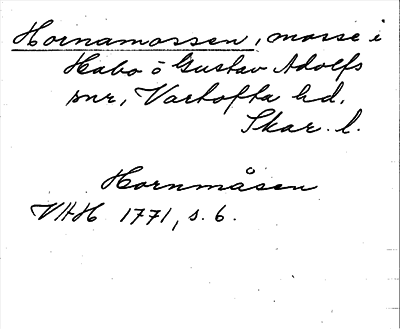 Hornamossen, mosse i
Habo o Gustav Adolfs
snr, Vartofta hd.
Skar. l.
Hornmåsen
VHH 1771, s. 6.